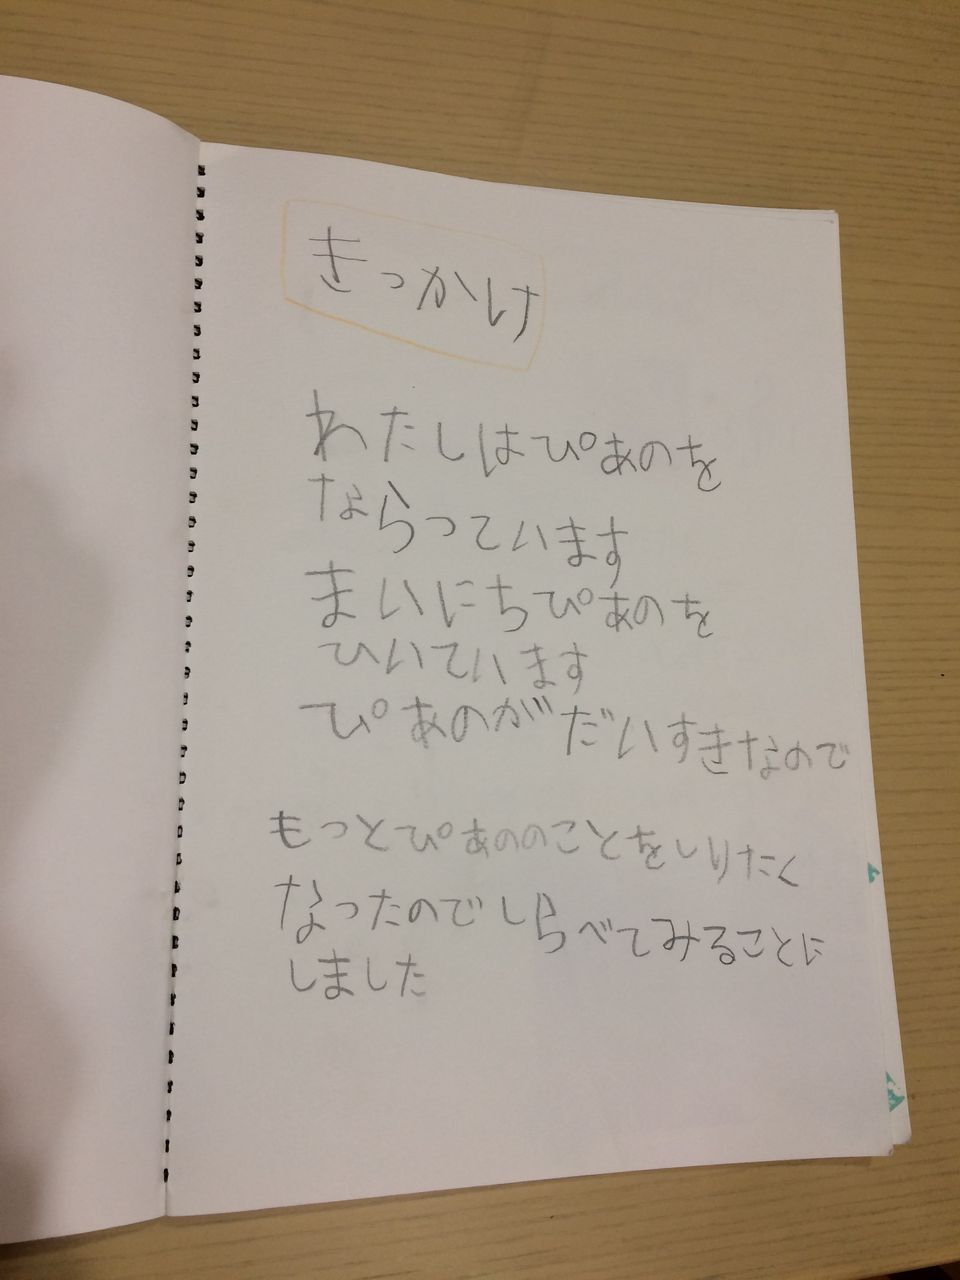 きっかけ
わたしはぴあのを
ならっています
まいにちぴあのを
ひいています
ぴあのがだいすきなので
もっとぴあののことをしりたく
なったのでしらべてみることに
しました